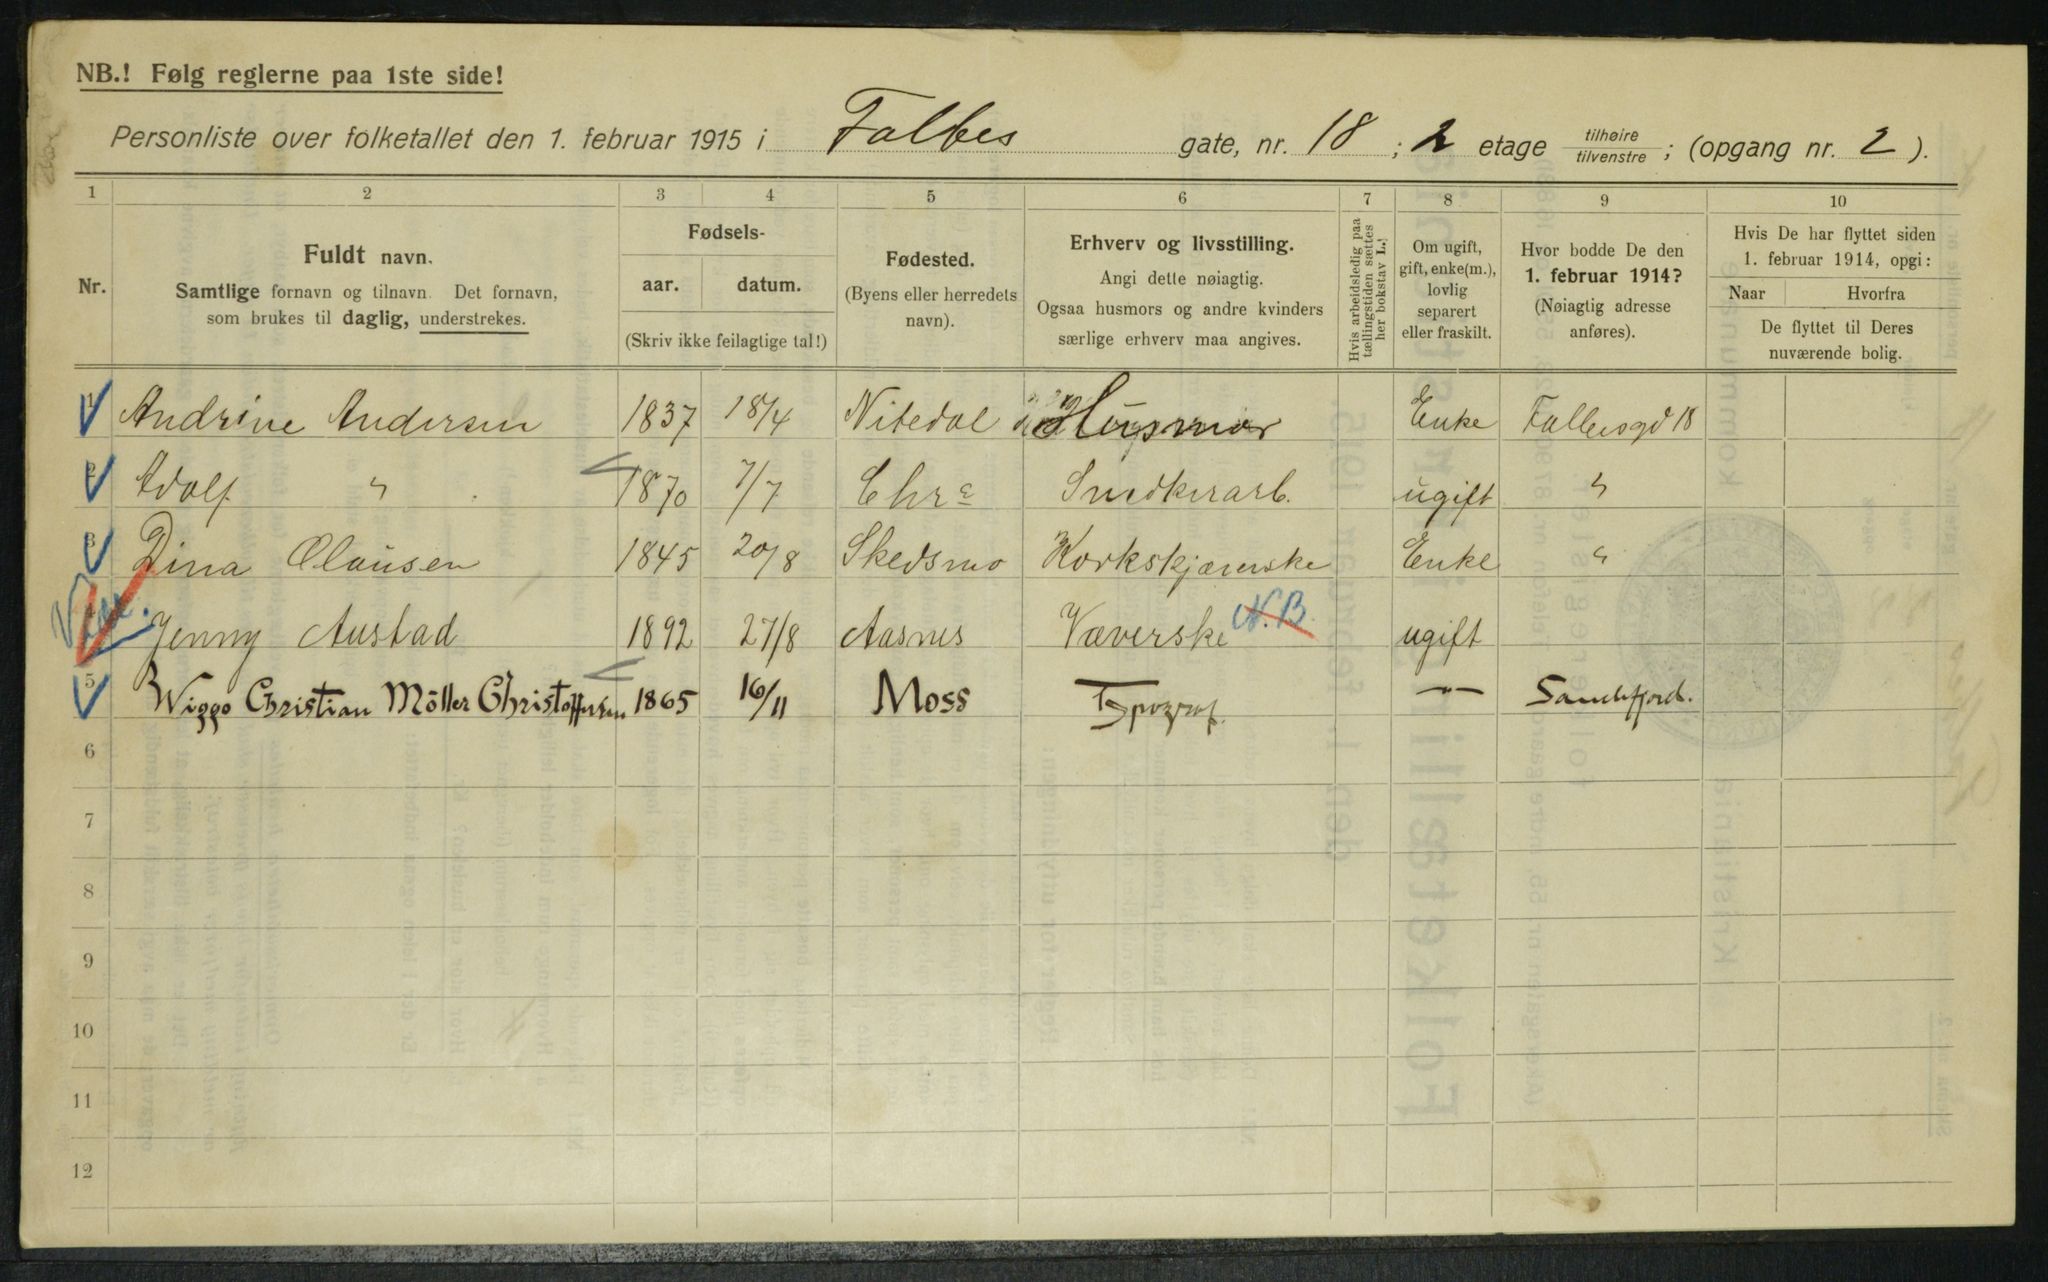 NB.! Følg reglerne paa 1ste side!
Personliste over folketallet den 1. februar 1915 i Falbes gate, nr. 18 ; 2 etage tilhøire / tilvenstre ; (opgang nr. 2 ).
1 2 3 4 5 6 7 8 9 10
Nr.
Fuldt navn.
Samtlige fornavn og tilnavn. Det fornavn,
som brukes til daglig, understrekes.
Fødsels-
aar. datum.
(Skriv ikke feilagtige tal!)
Fødested.
(Byens eller herredets
navn).
Erhverv og livsstilling.
Angi dette nøiagtig.
Ogsaa husmors og andre kvinders
særlige erhverv maa angives.
Hvis arbeidsledig paa
tællingstiden sættes
her bokstav L.!
Om ugift,
gift, enke(m.),
lovlig
separert
eller fraskilt.
Hvor bodde De den
1. februar 1914?
(Nøiagtig adresse
anføres).
Hvis De har flyttet siden
1. februar 1914, opgi:
Naar Hvorfra
De flyttet til Deres
nuværende bolig.
1 Andrine Andersen 1837 18/4 Nitedal Husmor Enke Falbesgd 18
2 Adolf " 1870 7/7 Chra Snedkerarb. ugift "
3 Dina Clausen 1845 20/8 Skedsmo Korkskjærerske Enke "
4 Jenny Austad 1892 27/8 Aasnes Væverske N.B. ugift
5 Wiggo Christian Möller Christoffersen 1865 16/11 Moss Typograf. — Sandefjord.
6
7
8
9
10
11
12